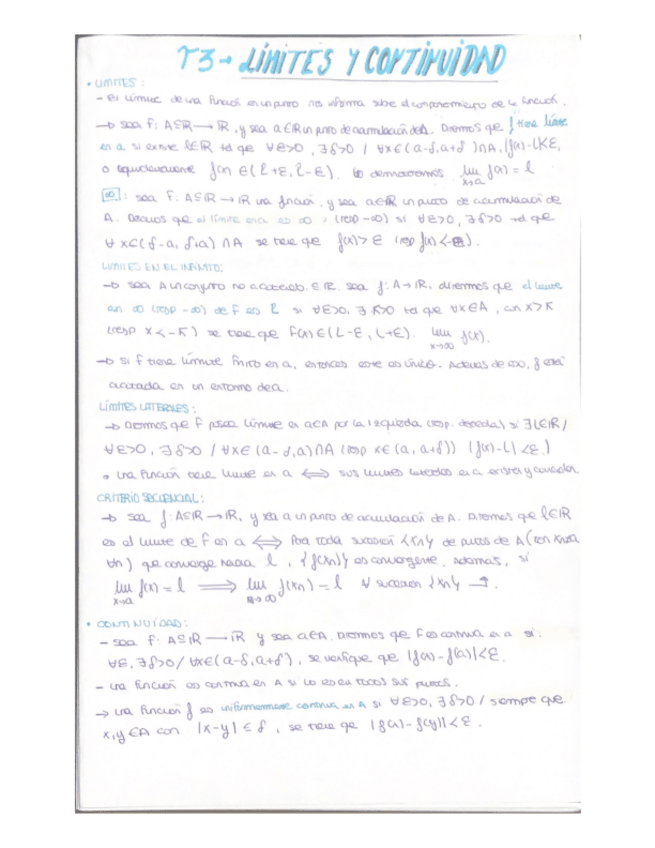 T3 → LÍMITES Y CONTINUIDAD
• LÍMITES:
- El límite de una función en un punto nos informa sobre el comportamiento de la función.
→ sea f: A⊆ℝ → ℝ, y sea a∈ℝ un punto de acumulación de A. Diremos que f tiene límite
en a si existe l∈ℝ tal que ∀ε>0, ∃δ>0 / ∀x∈(a-δ, a+δ)∩A, |f(x)-l|<ε,
o equivalentemente f(x) ∈(l+ε, l-ε). Lo denotaremos lim x→a f(x) = l
∞: sea f: A⊆ℝ → ℝ una función, y sea a∈ℝ un punto de acumulación de
A. Diremos que el límite en a es ∞, (resp -∞) si ∀ε>0, ∃δ>0 tal que
∀x∈(δ-a, δ+a)∩A se tiene que f(x)>ε (resp f(x)<-ε).
LÍMITES EN EL INFINITO:
→ sea A un conjunto no acotado ⊆ℝ. sea f: A→ℝ, diremos que el límite
en ∞ (resp -∞) de f es l si ∀ε>0, ∃K>0 tal que ∀x∈A, con x>K
(resp x<-K) se tiene que f(x)∈(L-ε, L+ε). lim x→∞ f(x).
→ si f tiene límite finito en a, entonces este es único. Además de eso, f está
acotada en un entorno de a.
LÍMITES LATERALES:
→ Diremos que f posee límite en a∈A por la izquierda (resp. derecha) si ∃l∈ℝ/
∀ε>0, ∃δ>0 / ∀x∈(a-δ, a)∩A (resp x∈(a, a+δ)) |f(x)-L|<ε.)
• una función tiene límite en a ⟺ sus límites laterales en a existen y
CRITERIO SECUENCIAL:
→ sea f: A⊆ℝ → ℝ, y sea a un punto de acumulación de A. Diremos que l∈ℝ
es el límite de f en a ⟺ Para toda sucesión {xn} de puntos de A (con xn≠a
∀n) que converge hacia l, {f(xn)} es convergente. Además, si
lim x→a f(x) = l ⟹ lim n→∞ f(xn) = l ∀ sucesión {xn}
• CONTINUIDAD:
- sea f: A⊆ℝ → ℝ y sea a∈A. Diremos que f es continua en a si:
∀ε, ∃δ>0 / ∀x∈(a-δ, a+δ), se verifique que |f(x)-f(a)|<ε.
- una función es continua en A si lo es en todos sus puntos.
→ una función f es uniformemente continua en A si ∀ε>0, ∃δ>0 / siempre que
x,y∈A con |x-y|≤δ, se tiene que |f(x)-f(y)|<ε.